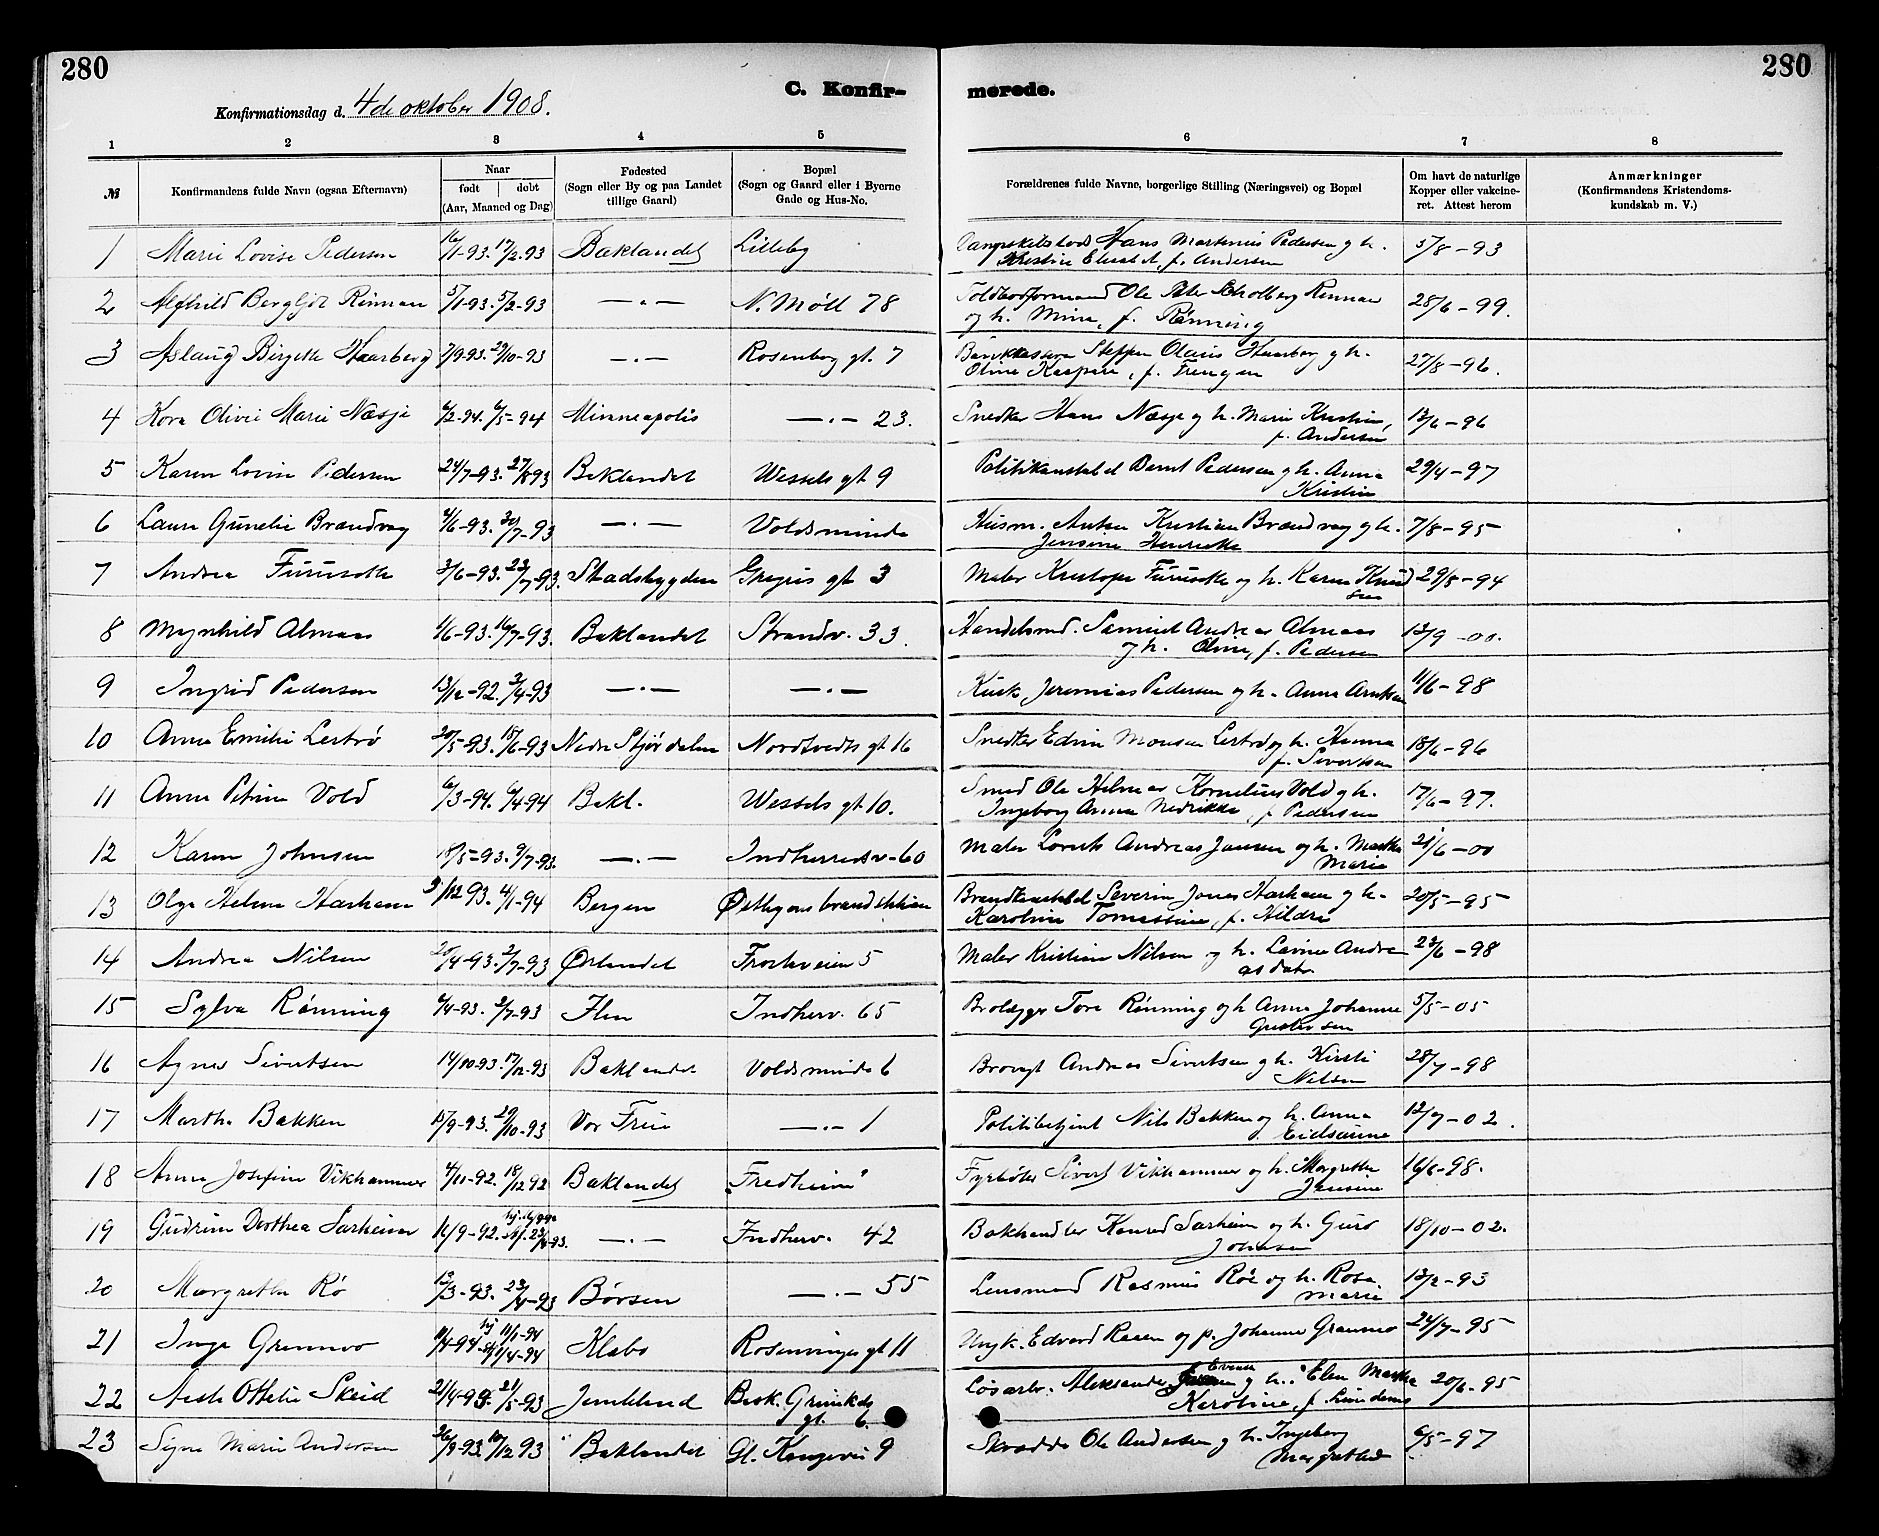 280
280
C. Konfir-
merede.
Konfirmationsdag d. 4de oktober 1908.
1 2 3 4 5 6 7 8
№ Konfirmandens fulde Navn (ogsaa Efternavn) Naar født døbt (Aar, Maaned og Dag) Fødested (Sogn eller By og paa Landet tillige Gaard) Bopæl (Sogn og Gaard eller i Byerne Gade og Hus-No. Forældrenes fulde Navne, borgerlige Stilling (Næringsvei) og Bopæl Om havt de naturlige Kopper eller vakcineret. Attest herom Anmærkninger (Konfirmandens Kristendomskundskab m. V.)
1 Marie Lovise Pedersen 16/1-93. 17/2-93 Baklandet Lilleby Hans Martenius Pedersen og h. Kristine Elisabet, f. Andersen 5/8-93
2 Alfhild Bergljot Rennan 5/1-93. 5/2-93 —„— N. Møll 78 Toldbodformand Ole Peter Rennan og h. Mina, f. Rønning 28/6-99.
3 Aslaug Birgitte Haarberg 7/9-93. 29/10-93 —„— Rosenborg gt. 7 Steffen Olaus Haarberg og h. Oline Kaspara, f. Trengen 27/8-96.
4 Kora Olivie Marie Næsje 6/2-94. 6/5-94 Minneapolis —„— 23. Snedker Hans Næsje og h. Marie Kristine, f. Andersen 13/6-96
5 Karen Lovise Pedersen 24/7-93. 27/8 93 Baklandet Wessels gt 9 Politikonstabel Bernt Pedersen og h. Anna Kristine 29/4-97
6 Laura Gunelie Brændvag 4/6-93. 30/7-93 —„— Voldsminde Husm. Anton Kristian Brændvag og h. Jensine Henrikke 7/8-95
7 Andrea Furuseth 3/6-93. 23/7-93. Stadsbygden Gregus gt 3 Maler Kristofer Furuseth og h. Karen Knudsen 29/5-94
8 Magnhild Almaas 1/6-93. 16/7-93. Baklandet Strandv. 33. Handelsmd. Samuel Andreas Almaas og h. Oline, f. Pedersen 13/9-00.
9 Ingrid Pedersen 13/12-92. 3/4-93 —„— —„— Kusk Jeremias Pedersen og h. Anna Arntsen 11/6-98
10 Anna Emilie Lertrø 20/5-93. 18/6-93 Nedre Stjørdalen Nordtvedts gt 16 Snedker Edvin Monsen Lertrø og h. Hanna f. Sivertsen 18/6-96
11 Anna Petrine Vold 6/3-94. 6/4-94 Bakl. Wessels gt 10. Smed Ole Helmer Kornelius Vold og h. Ingeborg Anna Nedrikke, f. Pedersen 17/6-97.
12 Karen Johnsen 18/5-93. 9/7-93. —„— Indherredsv-60 Maler Lorents Andreas Jansen og h. Martha Marie 21/6-00
13 Olga Helene Harham 3/12 93. 4/1-94 Bergen Østbyens brandstation Brandkonstabel Severin Jonas Harham og h. Karoline Tomassine, f. Hildre 20/5-95
14 Andrea Nilsen 25/4-93. 2/7-93 Ørlandet Frostaveien 5 Maler Kristian Nilsen og h. Lavine Andreasdatr. 23/6-98
15 Sylva Rønning 6/4-93. 2/7-93 Ilen Indherv. 65 Brolægger Tore Rønning og h Anna Johanne Gustavsen 5/5-05
16 Agnes Sivertsen 14/10-93. 17/12-93 Baklandet Voldsminde 6 Brovogt Andreas Sivertsen og h. Kirsti Nilsen 28/7-98
17 Martha Bakken 17/9-93. 29/10-93 Vor Frue —„— 1 Politibetjent Nils Bakken og h. Anna Eidsaune 12/7-02.
18 Anna Josefine Vikhammer 4/11-92. 18/12 92 Baklandet „Fredheim" Fyrbøter Sivert Vikhammer og h. Margrethe Jensine 16/6-98.
19 Gudrun Dorthea Sarheim 11/9-92. —„— Indherv. 42 Bokhandler Konrad Sarheim og h. Guro Johnsen 18/10-02.
20 Margrethe Rø 13/3-93. 23/4-93 Børsen —„— 55 Lensmand Rasmus Röe og h. Rosa Marie 13/2-93
21 Inga Grønmo 11/4-94 hj 11/4-94 st 11/4-94 Klæbo Rosenvinges gt 11 Ungk. Edvard Raaen og p. Johanne Grønmo 24/7-95
22 Ottilie Skeid 21/4-93. 21/5-93 Jemtland Bisk. Grimkels gt. 6. Løsarb. Aleksander Evensen og h. Elen Martha Karoline, f. 20/6-95
23 Signe Marie Andersen 26/9-93. 10/12 93 Baklandet Gl. Kongevei 9 Skrædder Ole Andersen og h. Ingeborg Margrethe 6/5-97